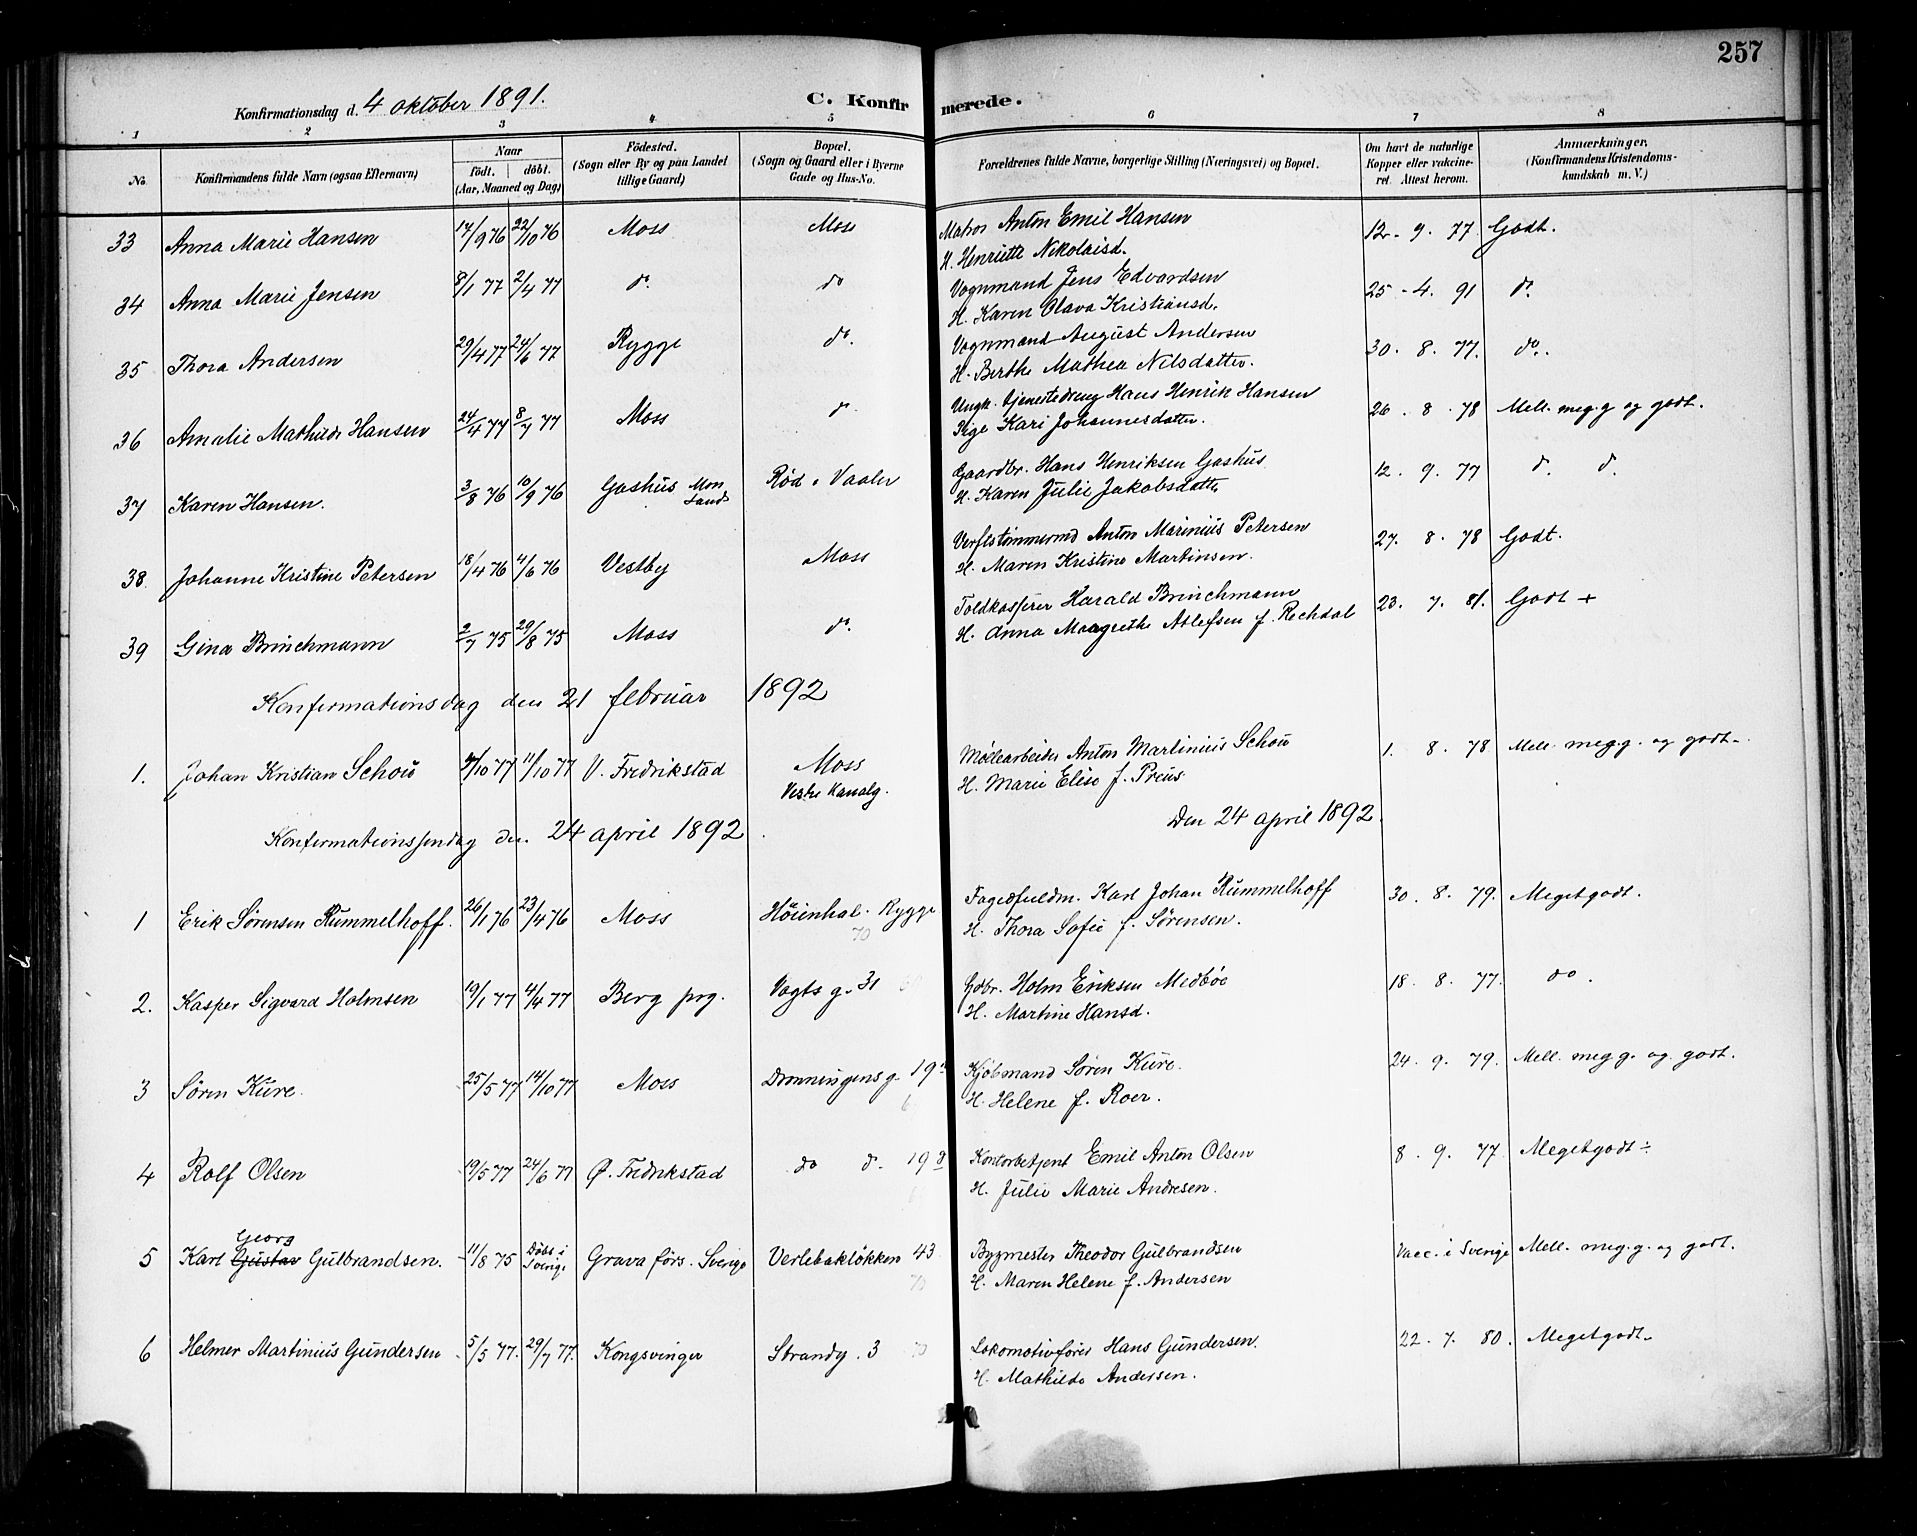 257
Konfirmationsdag d. 4 oktober 1891.
C. Konfirmerede.
1 2 3 4 5 6 7 8
No. Konfirmandens fulde Navn (ogsaa Efternavn) Naar født. døbt. (Aar, Maaned og Dag) Fødested. (Sogn eller By og paa Landet tillige Gaard) Bopæl. (Sogn og Gaard eller i Byerne Gade og Hus-No. Forældrenes fulde Navne, borgerlige Stilling (Næringsvei) og Bopæl. Om havt de naturlige Kopper eller vakcineret. Attest herom. Anmærkninger. (Konfirmandens Kristendomskundskab m. V.)
33 Anna Marie Hansen 14/9 76 22/10 76 Moss Moss Matros Anton Emil Hansen 12. 9. 77 Godt.
H. Henriette Nikolaisd.
34 Anna Marie Jensen 8/1 77 2/4 77 do do Vognmand Jens Edvardsen 25 - 4. 91 do
H. Karen Olava Kristiansd.
35 Thora Andersen 29/4 77 24/6 77 Rygge do. Vognmand August Andersen 30. 8. 77. do.
H. Berthe Mathea Nilsdatter.
36 Amalie Mathilde Hansen 24/4 77 8/7 77 Moss do. Ungk. tjenestedreng Hans Henrik Hansen 26. 8. 78 Mell. meg. g og godt.
Pige Kari Johannesdatter.
37 Karen Hansen. 3/8 76 10/9 76 Gashus Rød i Vaaler Gaardbr. Hans Henriksen Gashus 12. 9. 77 do. do.
H. Karen Julie Jakobsdatter
38. Johanne Kristine Petersen 18/4 76 4/6 76 Vestby Moss Verftstømmermd Anton Marinius Petersen 27. 8. 78 Godt.
H. Maren Kristine Martinsen.
39 Gina Brinchmann 2/7 75 29/8 75 Moss do. Toldkasserer Harald Brinchmann 23. 7. 81. Godt +
H. Anna Margrethe Atlefsen f. Rechdal
Konfirmationsdag den 21 februar 1892
1. Johan Kristian Schou 4/10 77 11/10 77 V. Fredrikstad Moss Møllearbeider Anton Martinius Schou 1. 8. 78 Mell. meg. g. og godt.
Vestre Kanalg. H. Marie Elise f. Preus.
Den 24 april 1892.
Konfirmationssøndag den 24 april 1892.
1 Erik Sørensen Rummelhoff. 26/1 76 23/4 76 Moss Høienhal. Rygge Fogedfuldm. Karl Johan Rummelhoff 30. 8. 79. Megetgodt.
70 H. Thora Sofie f. Sørensen.
2. Kasper Sigvard Holmsen 19/1 77 4/4 77 Berg prg. Vogts g. 31 Gdbr. Holm Eriksen Medbøe 18. 8. 77. do.
H. Martine Hansd.
3 Søren Kure. 25/5 77 14/10 77 Moss Dronningens g. 19 Kjøbmand Søren Kure. 24. 9. 79. Mell. meg g. og godt.
H. Helene f. Roer.
4 Rolf Olsen 19/5 77 24/6 77 Ø. Fredrikstad do do. 19 Kontorbetjent Emil Anton Olsen 8. 9. 77. Megetgodt ÷
H. Julie Marie Andresen.
Georg
5 Karl Gustav Gulbrandsen. 11/8 75 Døbt i Sverige Grava førs. Sverige Verlebakløkken 43 Bygmester Theodor Gulbrandsen Vacc. i Sverige Mell. meg. g. og godt.
70 H. Maren Helene f. Andersen
6 Helmer Martinius Gundersen 5/5 77. 29/7 77. Kongsvinger Strandg. 3 70 Lokomotivfører Hans Gundersen. 22. 7. 80. Megetgodt.
H. Mathilde Andersen.